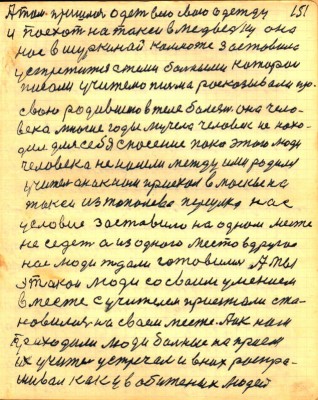 А там пришлося одет всю свою одежду 151
и поехат на такси в Медведку она
нас в шуркиной комноте заставила
устретится с теми болными которои
писали учителю писма росказывали про
свою родившиюю в теле болезн. она чело-
века многие годы мучела человек не нахо-
дил для себя спосение пока этого люди
человека не нашли между ими родился
учител он к ним приехал в москву на
такси из тополева переулка нас
условие заставило на одном месте
не седет а из одного место в другое
нас люди ждали готовилис А мы
этакои люди со своим умением
в месте с учителем приежали ста-
новилися на своем месте. А к нам
приходили люди болные на прием
их учител устречал и в них распра-
шивал как у обиженых людей